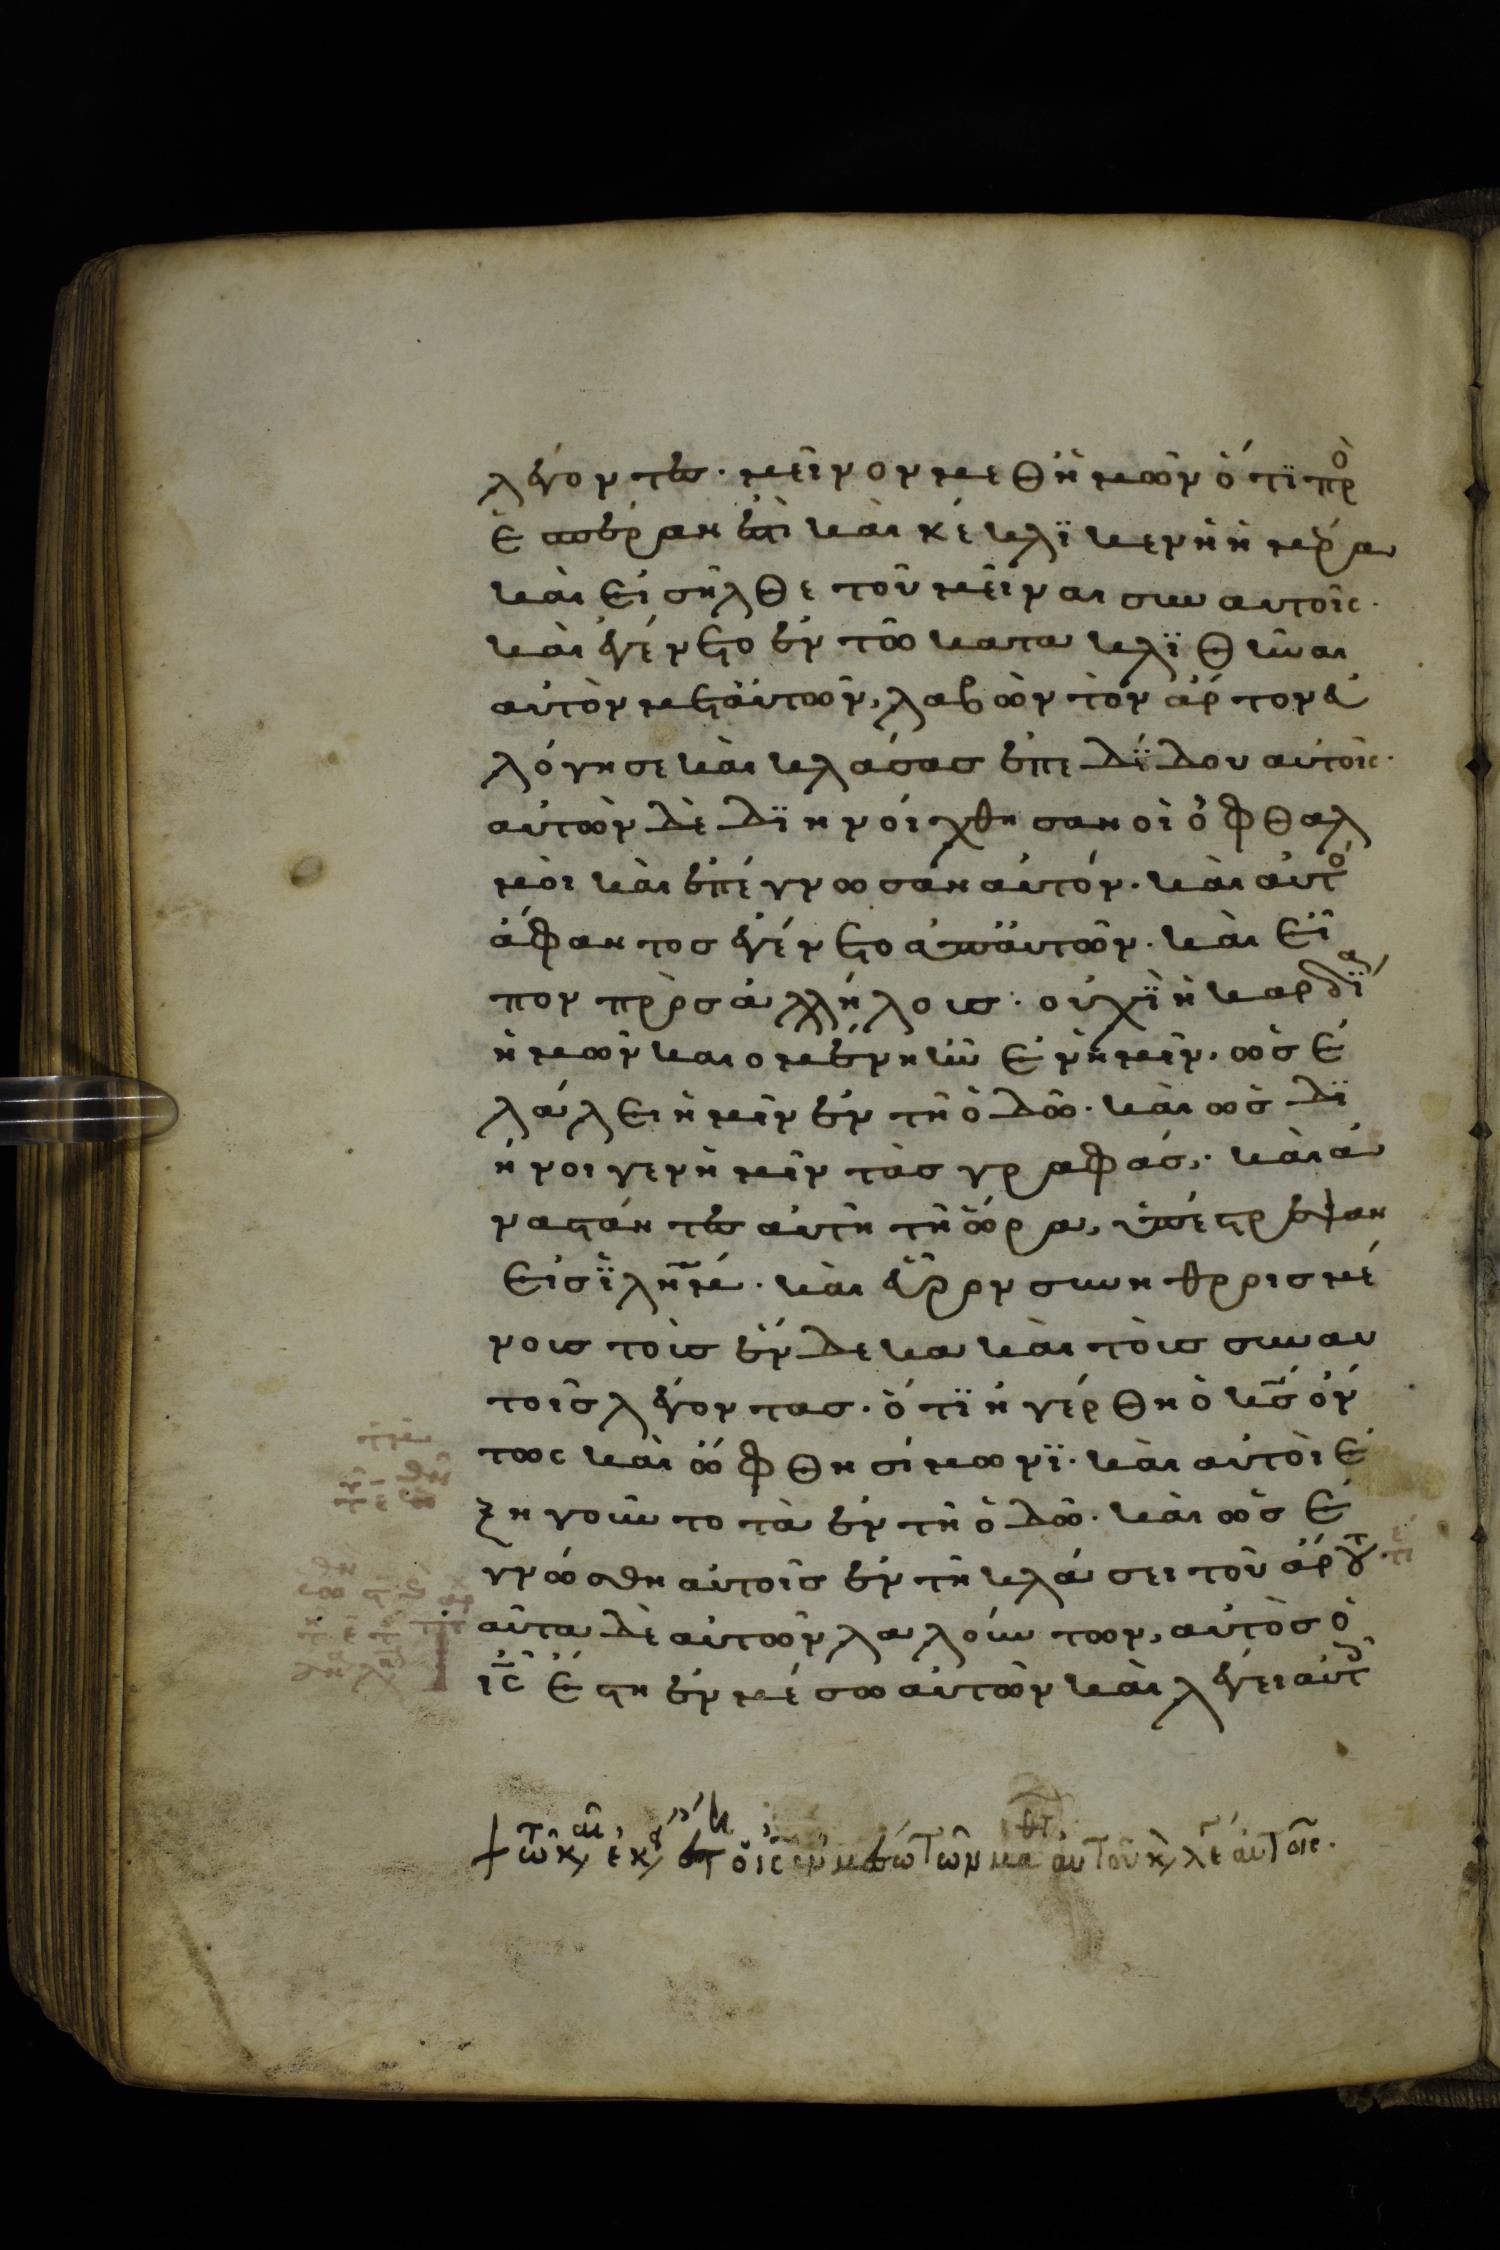 λέγοντες· μεῖνον μεθ ἡμῶν ὅτϊ πρ̀ο
ἑσπέραν ἐστὶ καὶ κέκλϊκεν ἡ ἡμέρα
καὶ εἰσῆλθε τοῦ μεῖναι σὺν αυτοῖς·
καὶ ἐγένετο ἐν τῶ κατακλϊθῆναι
αὐτὸν μετ ἀυτῶν, λαβὼν τὸν ἄρτον εὐ
λόγησε καὶ κλάσας ἐπεδΐδου αὐτοῖς·
αὐτῶν δὲ δϊηνοίχθησαν οἱ ὀφθαλ
μὸι καὶ ἐπέγνωσαν ἀυτόν· καὶ αὐτὸ
ἄφαντος ἐγένετο ἀπ ἀυτῶν· καὶ εἶ
πον πρὸς ἀλλήλους· οὐχῒ ἡ καρδΐα
ἡμῶν καιομένη ἦν ἐν ἡμῖν, ὡς ἐ
λάλει ἡμῖν ἐν τῆ ὁδῶ· καὶ ὡς δϊ
ήνοιγεν ἡμῖν τὰς γραφάς· καὶ ἀ
ναστάντες αὐτῆ τῆ ὥρα, ὑπέστρεψαν
εἰς ϊλῆμ· καὶ εὗρον συνηθροισμέ
νους τοὺς ἕνδεκα καὶ τοὺς συν αυ
τοῖς λέγοντας· ὅτϊ ἠγέρθη ὁ κς ὄν
τως καὶ ὤφθη σίμωνϊ· καὶ αὐτοὶ ἐ
ξηγοῦντο τὰ ἐν τῆ ὁδῶ· καὶ ὡς ἐ
γνώσθη αὐτοῖς ἐν τῆ κλάσει τοῦ ἄρτου
αῦτα δὲ αὐτῶν λαλούντων, αὐτὸς ὁ
ις ἔστη ἐν μέσω αὐτῶν καὶ λέγει αὐτ